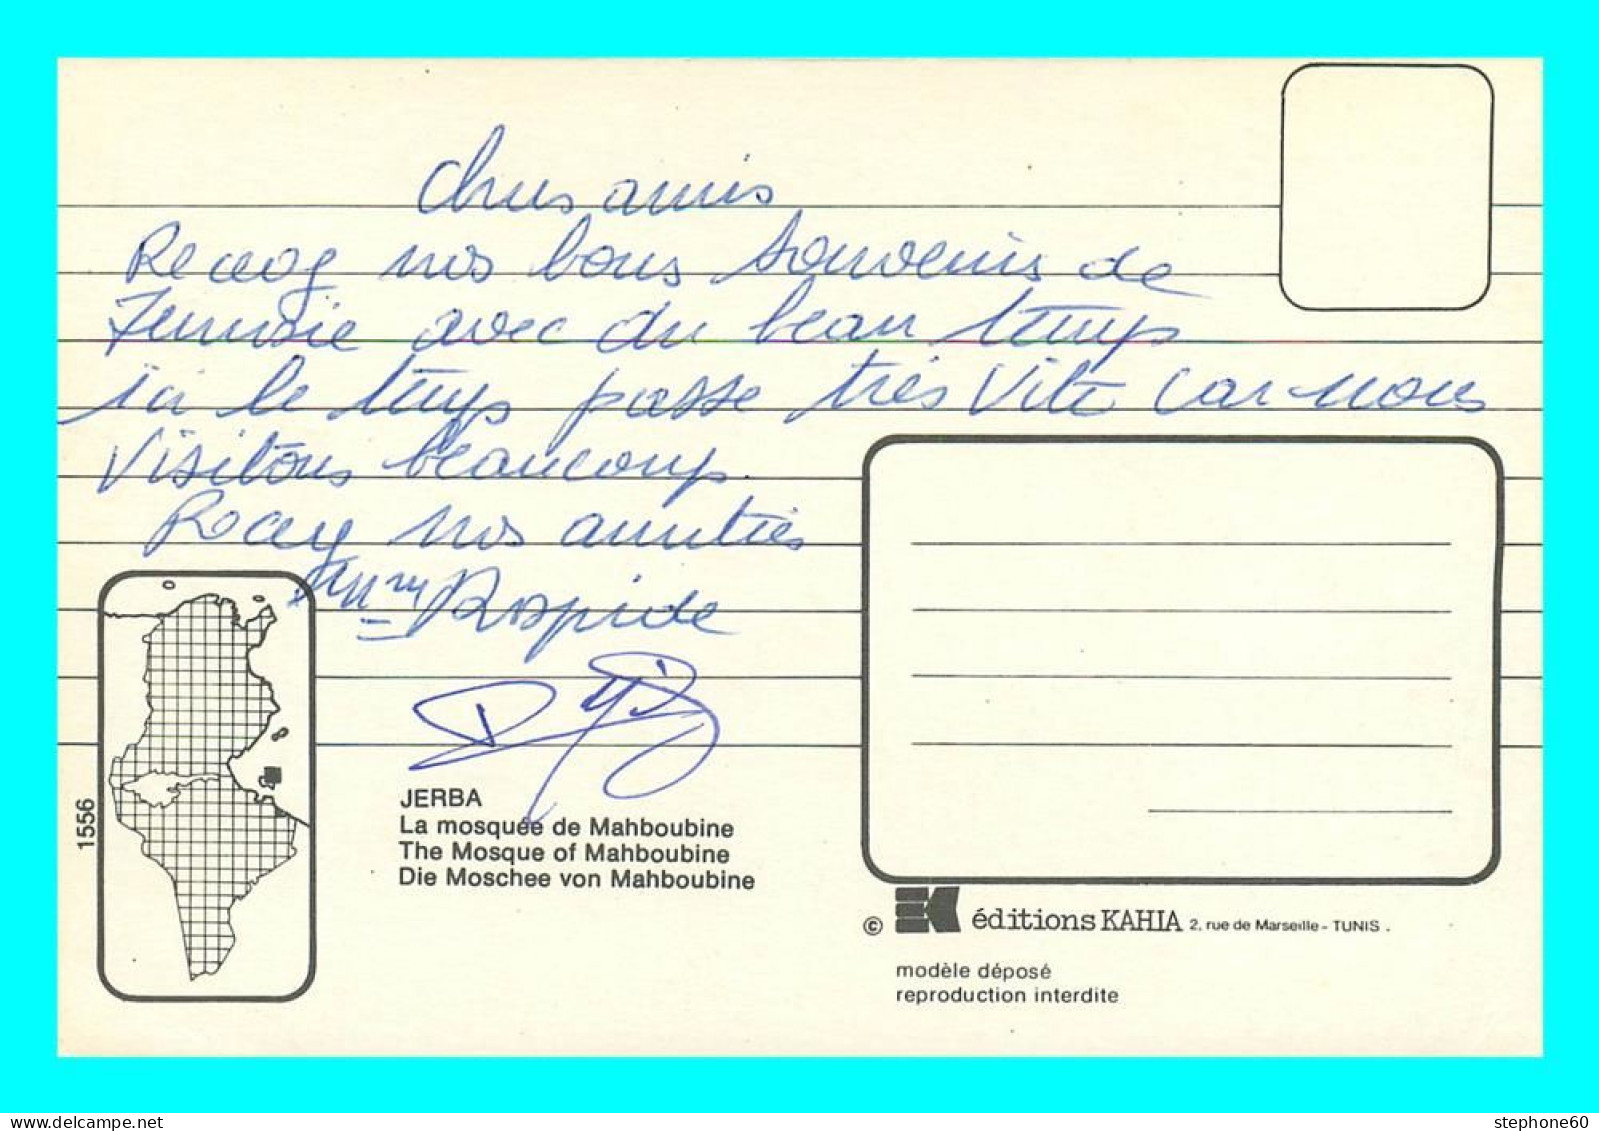 Chers amis
Recevez nos bons souvenirs de
Tunisie avec du beau temps
ici le temps passe très vite car nous
visitons beaucoup.
Recevez nos amitiés
Rapide
1556
JERBA
La mosquée de Mahboubine
The Mosque of Mahboubine
Die Moschee von Mahboubine
© éditions KAHIA 2, rue de Marseille - TUNIS .
modèle déposé
reproduction interdite
stephone60